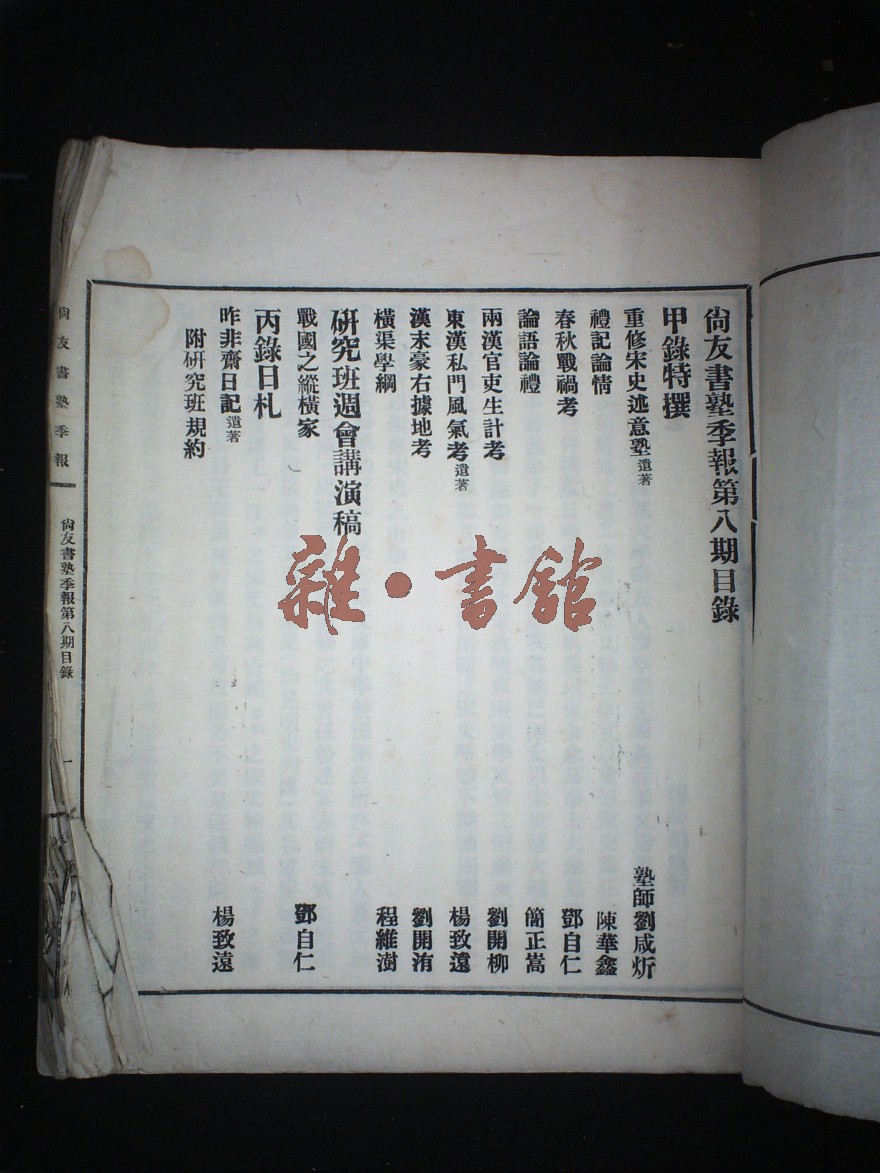 尙友書塾季報第八期目錄
甲錄特撰
重修宋史述意塾遺著 塾師劉咸炘
禮記論情 陳華鑫
春秋戰禍考 鄧自仁
論語論禮 簡正嵩
兩漢官吏生計考 劉開柳
東漢私門風氣考遺著 楊致遠
漢末豪右據地考 劉開洧
橫渠學綱 程維澍
硏究班週會講演稿
戰國之縱橫家 鄧自仁
丙錄日札
昨非齋日記遺著 楊致遠
附硏究班規約
尙友書塾季報
尙友書塾季報第八期目錄
一
雜·書館